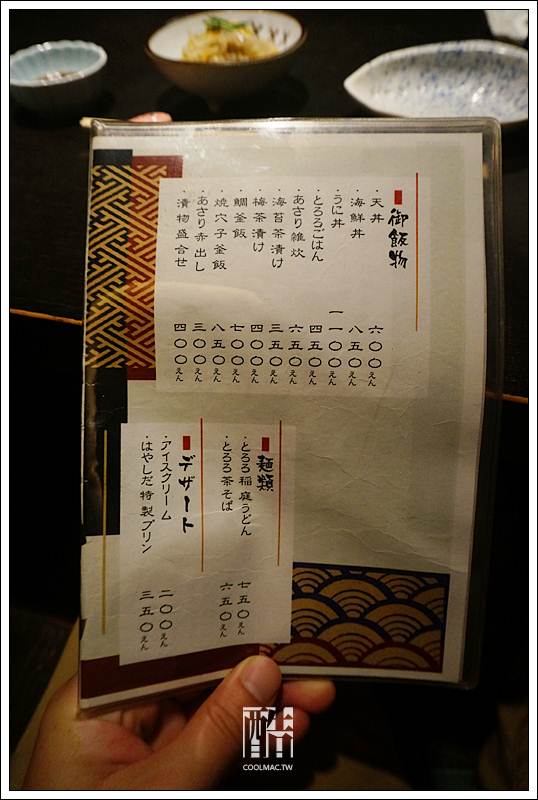 御飯物
・天丼 六〇〇えん
・海鮮丼 八五〇えん
・うに丼 一一〇〇えん
・とろろごはん 四五〇えん
・あさり雑炊 六五〇えん
・海苔茶漬け 三五〇えん
・梅茶漬け 四〇〇えん
・鯛釜飯 七〇〇えん
・焼穴子釜飯 八五〇えん
・あさり赤出し 三〇〇えん
・漬物盛合せ 四〇〇えん
麺類
・とろろ稲庭うどん 七五〇えん
・とろろ茶そば 六五〇えん
デザート
・アイスクリーム 二〇〇えん
・はやしだ特製プリン 三五〇えん
酷
COOLMAC.TW